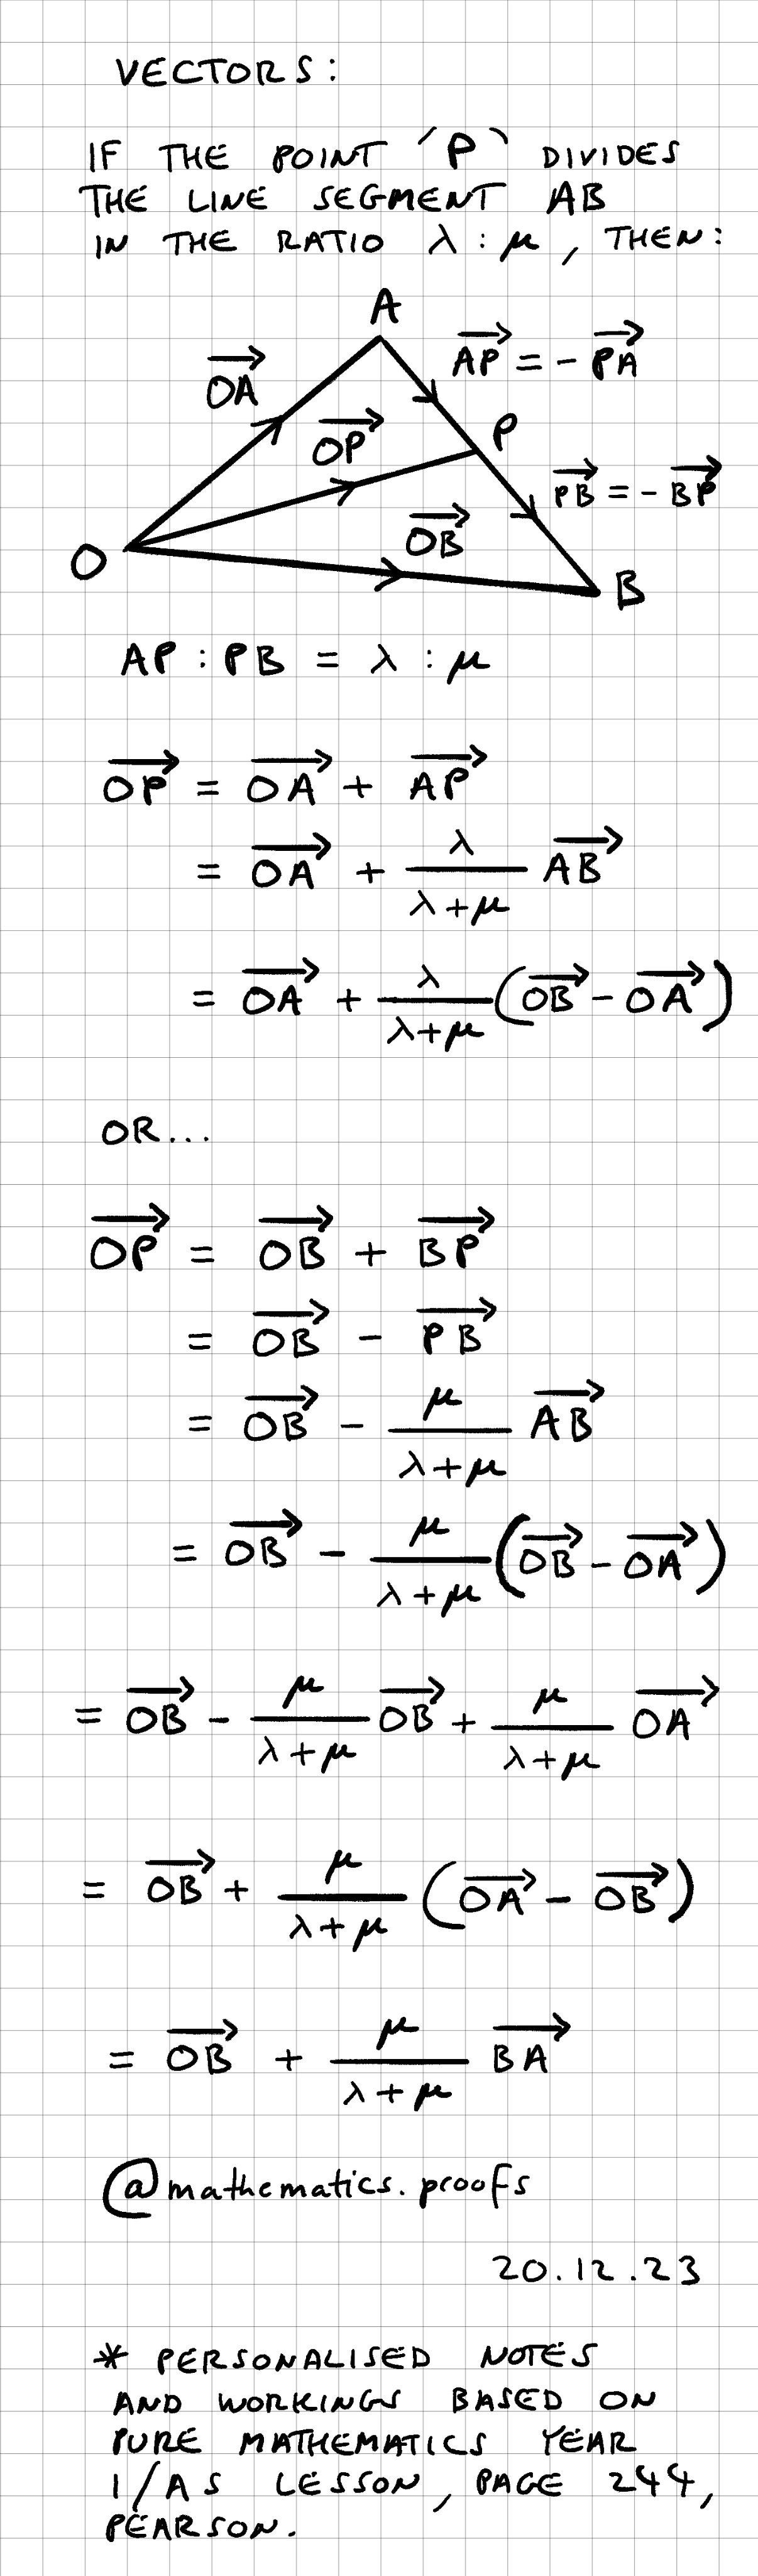 VECTORS:
IF THE POINT ‘P’ DIVIDES
THE LINE SEGMENT AB
IN THE RATIO λ : μ, THEN:
A
\overrightarrow{OA}
\overrightarrow{AP} = - \overrightarrow{PA}
\overrightarrow{OP}
P
\overrightarrow{PB} = - \overrightarrow{BP}
\overrightarrow{OB}
O
B
AP : PB = λ : μ
\overrightarrow{OP} = \overrightarrow{OA} + \overrightarrow{AP}
= \overrightarrow{OA} + \frac{λ}{λ+μ} \overrightarrow{AB}
= \overrightarrow{OA} + \frac{λ}{λ+μ} (\overrightarrow{OB} - \overrightarrow{OA})
OR...
\overrightarrow{OP} = \overrightarrow{OB} + \overrightarrow{BP}
= \overrightarrow{OB} - \overrightarrow{PB}
= \overrightarrow{OB} - \frac{μ}{λ+μ} \overrightarrow{AB}
= \overrightarrow{OB} - \frac{μ}{λ+μ} (\overrightarrow{OB} - \overrightarrow{OA})
= \overrightarrow{OB} - \frac{μ}{λ+μ} \overrightarrow{OB} + \frac{μ}{λ+μ} \overrightarrow{OA}
= \overrightarrow{OB} + \frac{μ}{λ+μ} (\overrightarrow{OA} - \overrightarrow{OB})
= \overrightarrow{OB} + \frac{μ}{λ+μ} \overrightarrow{BA}
@mathematics.proofs
20.12.23
* PERSONALISED NOTES
AND WORKINGS BASED ON
PURE MATHEMATICS YEAR
1/AS LESSON, PAGE 244,
PEARSON.